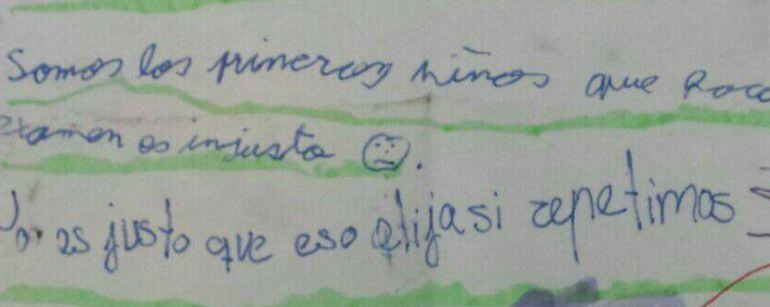 Somos los primeros niños que
examen es injusto ☹.
No es justo que eso elija si repetimos